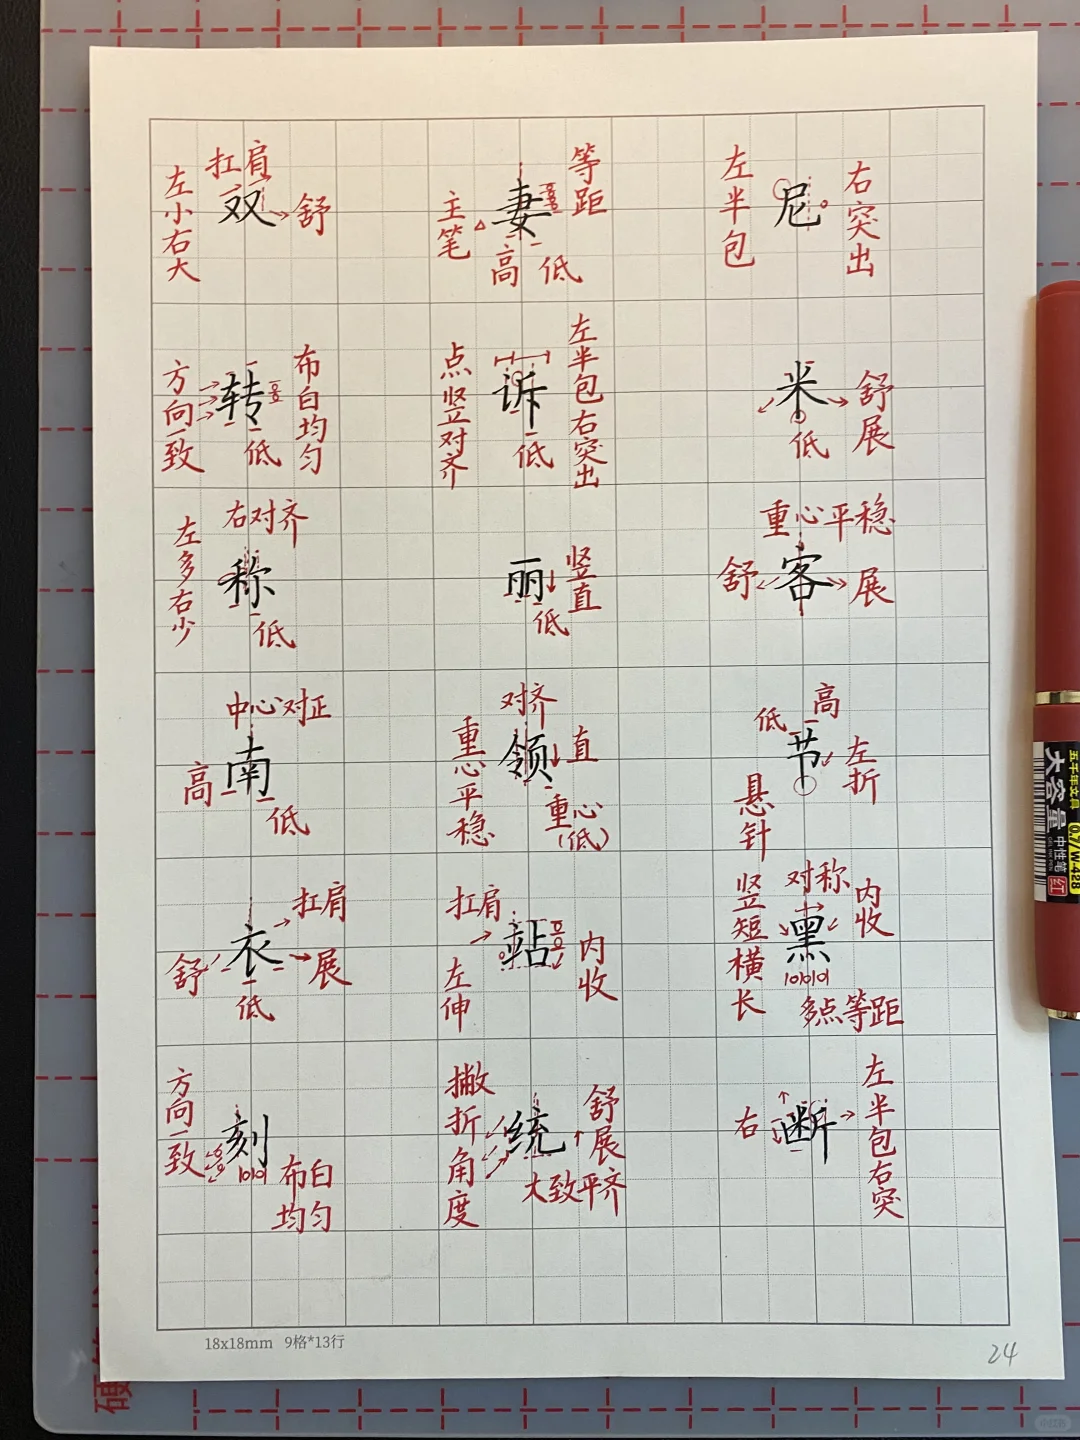 扛肩
左小右大
双
舒
等距
主笔
妻
高
低
左半包
尼
右突出
方向一致
转
布白均匀
低
点竖对齐
诉
左半包右突出
低
米
舒展
低
右对齐
左多右少
称
低
丽
竖直
低
重心平稳
舒
客
展
中心对正
高
南
低
对齐
重心平稳
领
直
重心(低)
高
低
节
左折
悬针
扛肩
衣
舒
展
低
扛肩
站
左伸
内收
对称
竖短横长
黑
内收
多点等距
方向一致
刻
布白均匀
撇折角度
统
舒展
大致平齐
右
断
左半包右突
18x18mm 9格*13行
24
五千年文具
0.7/W-428
大容量
中性笔
红